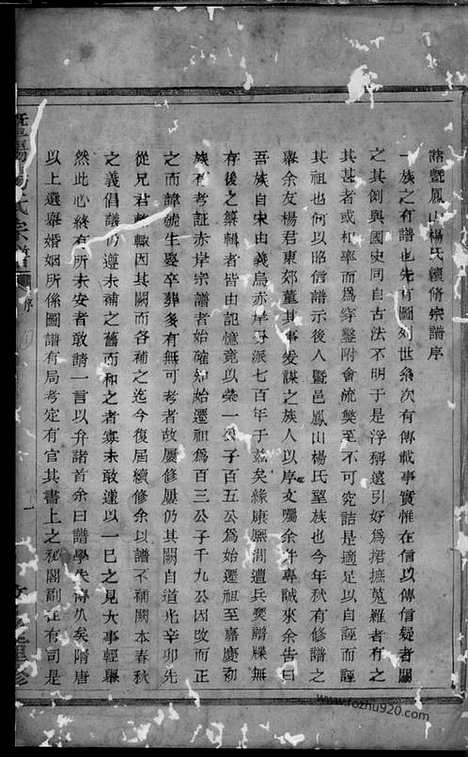 諸暨鳳山楊氏續修宗譜序
一族之有譜也先有圖列世系次有傳載事實惟在信以傳信疑者闕
之其例與國史同自古法不明于是浮稱遠引好為捃摭蒐羅者有之
其甚者或杜撰而為穿鑿附會流獘至不可究詰是適足以自誣而誣
其祖也何以昭信譜示後人暨邑鳳山楊氏望族也今年秋有修譜之
舉余友楊君東郊董其事爰謀之族人以序文囑余幷專誠來余告曰
吾族自宋由義烏赤岸分派七百年于茲矣緣康熙間遭兵燹譜牒無
存後之纂輯者皆由記憶竟以榮一公子百五公為始遷祖至嘉慶初
族有考証赤岸宗譜者始確知始遷祖為百三公子千九公因改而正
之而諱號生娶卒葬多有無可考者故屢修屢仍其闕自道光辛卯先
從兄君 輒因其闕而各補之迄今復屆續修余以譜不補闕本春秋
之義倡議仍遵未補之舊而和之者寡未敢遽以一己之見大事輕舉
然此心終有所未安者敢請一言以弁諸首余曰譜學失傳久矣隋唐
以上選舉婚姻所係圖譜有局考定有官其書上之祕閣副在有司是
暨陽楊氏宗譜 序
www.fozhu920.com